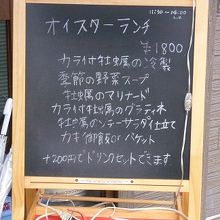 11:30〜14:00
オイスターランチ
¥1800
カラ付牡蠣の冷製
季節の野菜スープ
牡蠣のマリナード
カラ付牡蠣のグラティネ
牡蠣のシーザーサラダ仕立て
カキ御飯orバケット
+200円でドリンクセットできます